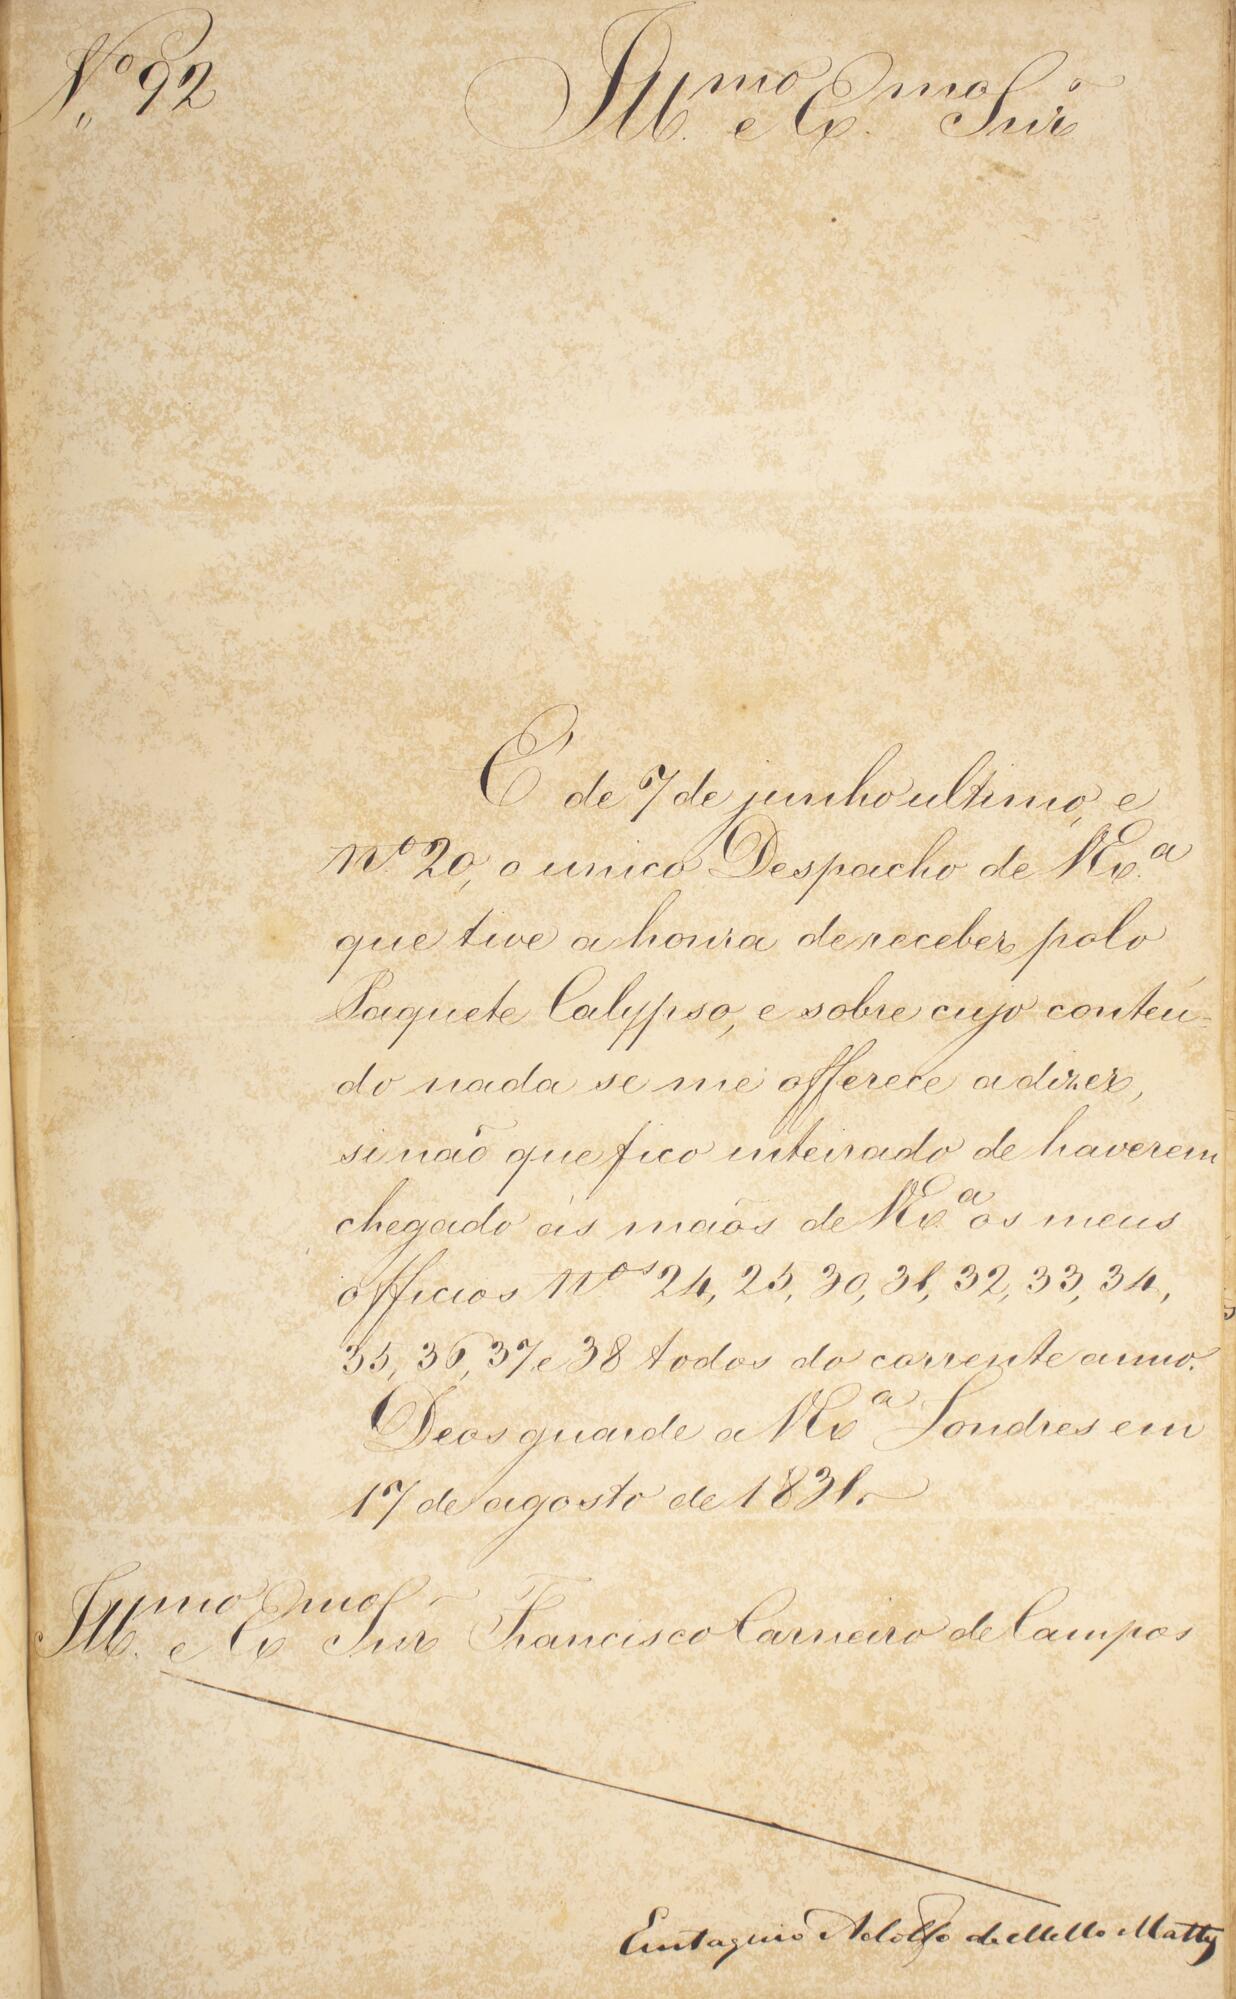 Nº 92
Illmo e Exmo Snr
É de 7 de junho ultimo, e
nº 20, o unico Despacho de VExª
que tive a honra de receber polo
Paquete Calypso, e sobre cujo conteú-
do nada se me offerece a dizer,
sinaõ que fico inteirado de haverem
chegado ás maõs de VExª os meus
officios Nos 24, 25, 30, 31, 32, 33, 34,
35, 36, 37 e 38 todos do corrente anno.
Deos guarde a VExª Londres em
17 de agosto de 1831.
Illmo e Exmo Snr Francisco Carneiro de Campos
Eustaquio Adolfo de Mello Mattos